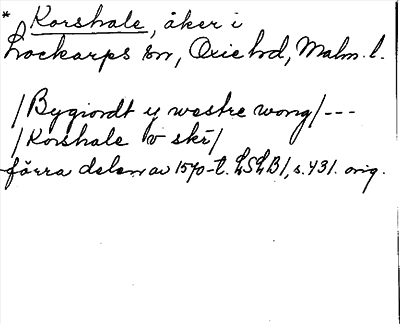 * Korshale, åker i
Lockarps sn, Oxie hd, Malm. l.
/Bygiordt y westre wong/ ---
/Korshale v skr/
förra delen av 1570-t. LSLB1, s. 431. orig.